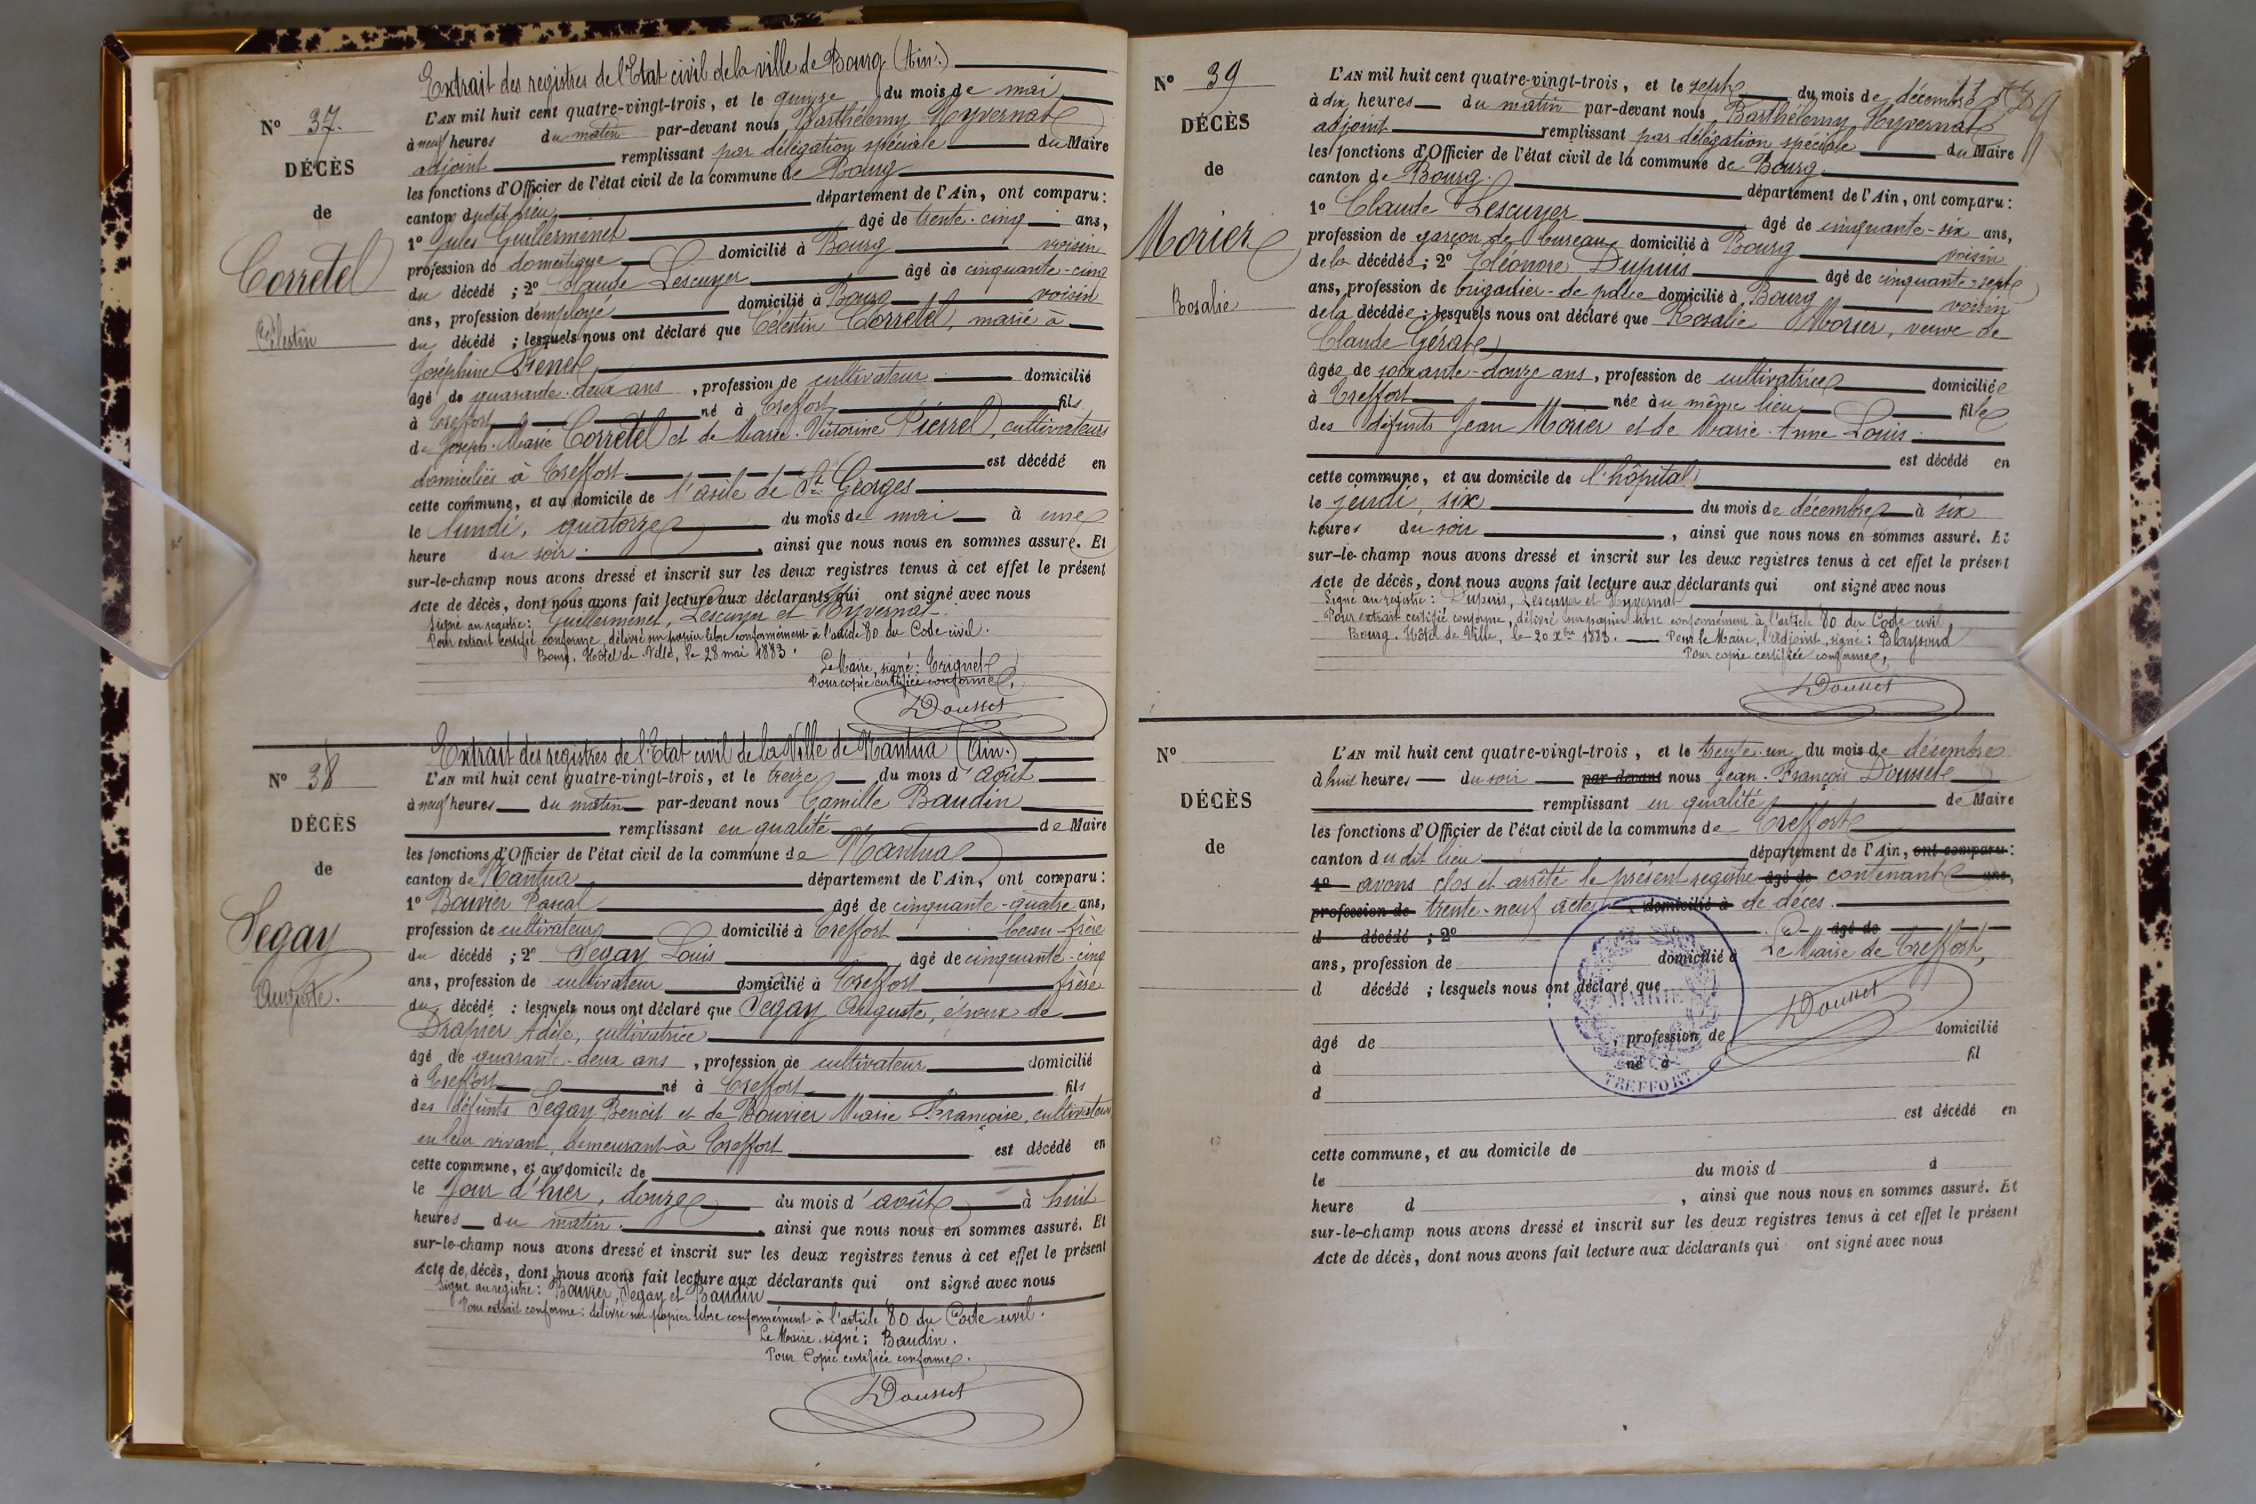 Extrait des registres de l'Etat civil de la ville de Bourg (Ain.)
N° 37.
DÉCÈS
de
Corretel
Célestin
L'AN mil huit cent quatre-vingt-trois, et le quinze du mois de mai
à neuf heures du matin par-devant nous Barthélemy Hyvernat
adjoint remplissant par délégation spéciale du Maire
les fonctions d'Officier de l'état civil de la commune de Bourg
canton dudit lieu département de l'Ain, ont comparu:
1° Jules Guillerminet âgé de trente-cinq ans,
profession de domestique domicilié à Bourg voisin
du décédé; 2° Claude Lescuyer âgé de cinquante-cinq
ans, profession d'employé domicilié à Bourg voisin
du décédé; lesquels nous ont déclaré que Célestin Corretel, marié à
Joséphine
âgé de quarante-deux ans, profession de cultivateur domicilié
à Treffort né à Treffort fils
de Joseph-Marie Corretel et de Marie-Victorine Pierrel, cultivateurs
domiciliés à Treffort est décédé en
cette commune, et au domicile de l'asile de St Georges
le lundi, quatorze du mois de mai à une
heure du soir, ainsi que nous nous en sommes assuré. Et
sur-le-champ nous avons dressé et inscrit sur les deux registres tenus à cet effet le présent
Acte de décès, dont nous avons fait lecture aux déclarants qui ont signé avec nous
Signé au registre: Guillerminet, Lescuyer et Hyvernat.
Pour extrait certifié conforme, délivré sur papier libre conformément à l'article 80 du Code civil.
Bourg, Hôtel de Ville, le 28 mai 1883.
Le Maire, signé:
Pour copie certifiée conforme,
Dousset
Extrait des registres de l'Etat civil de la Ville de Nantua (Ain.)
N° 38
DÉCÈS
de
Segay
Auguste.
L'AN mil huit cent quatre-vingt-trois, et le treize du mois d'août
à neuf heures du matin par-devant nous Camille Baudin
remplissant en qualité de Maire
les fonctions d'Officier de l'état civil de la commune de Nantua
canton de Nantua département de l'Ain, ont comparu:
1° Bouvier Pascal âgé de cinquante-quatre ans,
profession de cultivateur domicilié à Treffort beau-frère
du décédé; 2° Segay Louis âgé de cinquante-cinq
ans, profession de cultivateur domicilié à Treffort frère
du décédé: lesquels nous ont déclaré que Segay Auguste, époux de
Drapier Adèle, cultivatrice
âgé de quarante-deux ans, profession de cultivateur domicilié
à Treffort né à Treffort fils
des défunts Segay Benoit et de Bouvier Marie Françoise, cultivateurs
en leur vivant, demeurant à Treffort est décédé en
cette commune, et au domicile de
le jour d'hier, douze du mois d'août à huit
heures du matin, ainsi que nous nous en sommes assuré. Et
sur-le-champ nous avons dressé et inscrit sur les deux registres tenus à cet effet le présent
Acte de décès, dont nous avons fait lecture aux déclarants qui ont signé avec nous
Signé au registre: Bouvier, Segay et Baudin
Pour extrait conforme: délivré sur papier libre conformément à l'article 80 du Code civil.
Le Maire, signé: Baudin.
Pour Copie certifiée conforme.
Dousset
N° 39
DÉCÈS
de
Morier
Rosalie
L'AN mil huit cent quatre-vingt-trois, et le sept du mois de décembre
à dix heures du matin par-devant nous Barthélemy Hyvernat
adjoint remplissant par délégation spéciale du Maire
les fonctions d'Officier de l'état civil de la commune de Bourg
canton de Bourg. département de l'Ain, ont comparu:
1° Claude Lescuyer âgé de cinquante-six ans,
profession de garçon de bureau domicilié à Bourg voisin
de la décédée; 2° Eléonore Dupuis âgé de cinquante-sept
ans, profession de brigadier-de police domicilié à Bourg voisin
de la décédée; lesquels nous ont déclaré que Rosalie Morier, veuve de
Claude Gérat
âgée de soixante-douze ans, profession de cultivatrice domiciliée
à Treffort née au même lieu fille
des défunts Jean Morier et de Marie-Anne Louis.
est décédé en
cette commune, et au domicile de l'hôpital
le jeudi, six du mois de décembre à six
heures du soir, ainsi que nous nous en sommes assuré. Et
sur-le-champ nous avons dressé et inscrit sur les deux registres tenus à cet effet le présent
Acte de décès, dont nous avons fait lecture aux déclarants qui ont signé avec nous
Signé au registre: Dupuis, Lescuyer et Hyvernat
Pour extrait certifié conforme, délivré sur papier libre conformément à l'article 80 du Code civil
Bourg, Hôtel de Ville, le 20 Xbre 1883. Pour le Maire, l'Adjoint, signé:
Pour copie certifiée conforme,
Dousset
N°
DÉCÈS
de
L'AN mil huit cent quatre-vingt-trois, et le trente-un du mois de décembre
à huit heures du soir par-devant nous Jean-François Dousset
remplissant en qualité de Maire
les fonctions d'Officier de l'état civil de la commune de Treffort
canton du dit lieu département de l'Ain, ont comparu:
1° avons clos et arrêté le présent registre âgé de contenant ans,
profession de trente-neuf actes domicilié à de décès.
d décédé; 2° âgé de
ans, profession de domicilié à Le Maire de Treffort,
d décédé; lesquels nous ont déclaré que
Dousset
MAIRIE
TREFFORT
âgé de , profession de domicilié
à né à fil
d
est décédé en
cette commune, et au domicile de
le du mois d à
heure d , ainsi que nous nous en sommes assuré. Et
sur-le-champ nous avons dressé et inscrit sur les deux registres tenus à cet effet le présent
Acte de décès, dont nous avons fait lecture aux déclarants qui ont signé avec nous